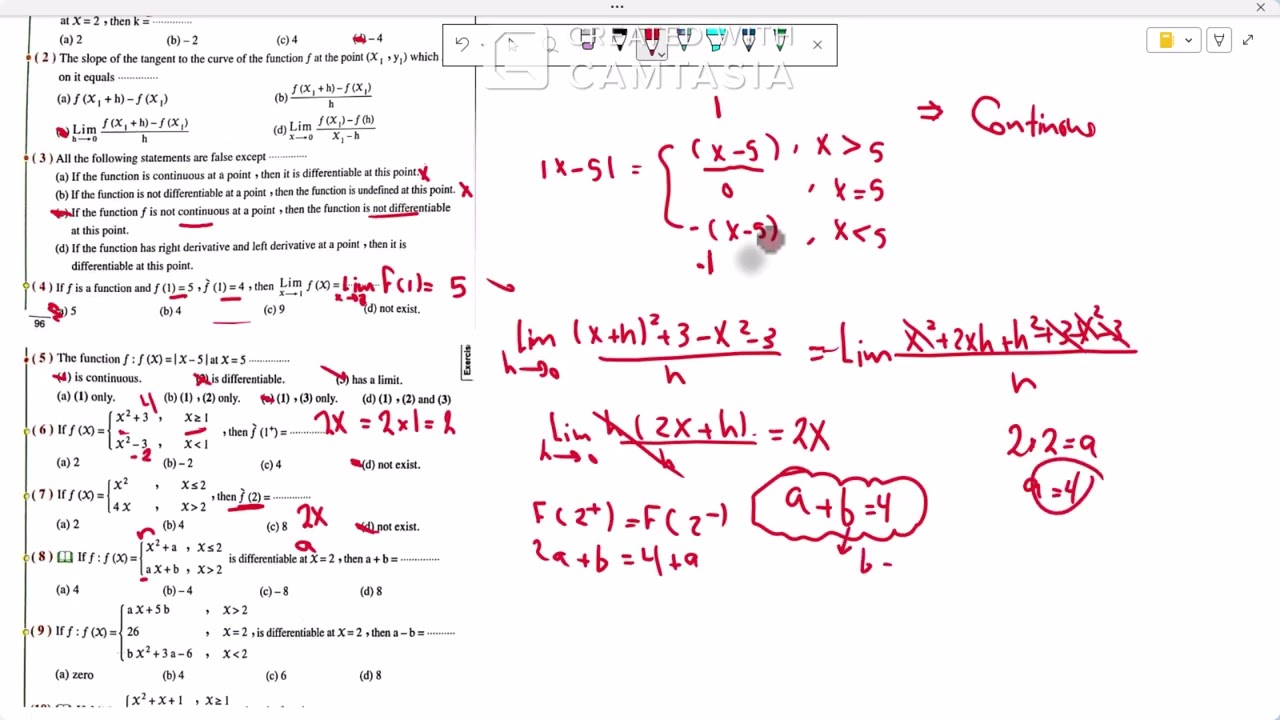 at X = 2 , then k = ..............
(a) 2 (b) – 2 (c) 4 (d) – 4
( 2 ) The slope of the tangent to the curve of the function f at the point (X₁ , y₁) which
on it equals ..............
(a) f (X₁ + h) – f (X₁) (b) f (X₁ + h) – f (X₁) / h
Lim h→0 f (X₁ + h) – f (X₁) / h (d) Lim x→0 f (X₁) – f (h) / X₁ – h
( 3 ) All the following statements are false except ..............
(a) If the function is continuous at a point , then it is differentiable at this point. x
(b) If the function is not differentiable at a point , then the function is undefined at this point. x
(c) If the function f is not continuous at a point , then the function is not differentiable
at this point.
(d) If the function has right derivative and left derivative at a point , then it is
differentiable at this point.
( 4 ) If f is a function and f (1) = 5 , f̀ (1) = 4 , then Lim x→1 f (X) = Lim F(1) = 5
(a) 5 (b) 4 (c) 9 (d) not exist.
96
Exercis
( 5 ) The function f : f (X) = | X – 5 | at X = 5 ..............
(1) is continuous. (2) is differentiable. (3) has a limit.
(a) (1) only. (b) (1) , (2) only. (c) (1) , (3) only. (d) (1) , (2) and (3)
4
( 6 ) If f (X) = { X² + 3 , X ≥ 1 2X = 2 × 1 = 2
, then f̀ (1⁺) = ..............
X² – 3 , X < 1
-2
(a) 2 (b) – 2 (c) 4 (d) not exist.
( 7 ) If f (X) = { X² , X ≤ 2
, then f̀ (2) = ..............
4 X , X > 2
(a) 2 (b) 4 (c) 8 (d) not exist.
2X
a
( 8 ) If f : f (X) = { X² + a , X ≤ 2
is differentiable at X = 2 , then a + b = ..............
a X + b , X > 2
(a) 4 (b) – 4 (c) – 8 (d) 8
( 9 ) If f : f (X) = { a X + 5 b , X > 2
26 , X = 2 , is differentiable at X = 2 , then a – b = ..........
b X² + 3 a – 6 , X < 2
(a) zero (b) 4 (c) 6 (d) 8
{ X² + X + 1 , X ≥ 1
CREATED WITH
CAMTASIA
1
⇒ Continous
|x-5| = { (x-5) , x > 5
0 , x = 5
-(x-5) , x < 5
-1
Lim h→0 (x+h)² + 3 - x² - 3 / h = Lim x² + 2xh + h² + 3 - x² - 3 / h
Lim h→0 h (2x+h) / h = 2x
2,2 = a
a = 4
F(2⁺) = F(2⁻)
a + b = 4
2a + b = 4 + a
b -